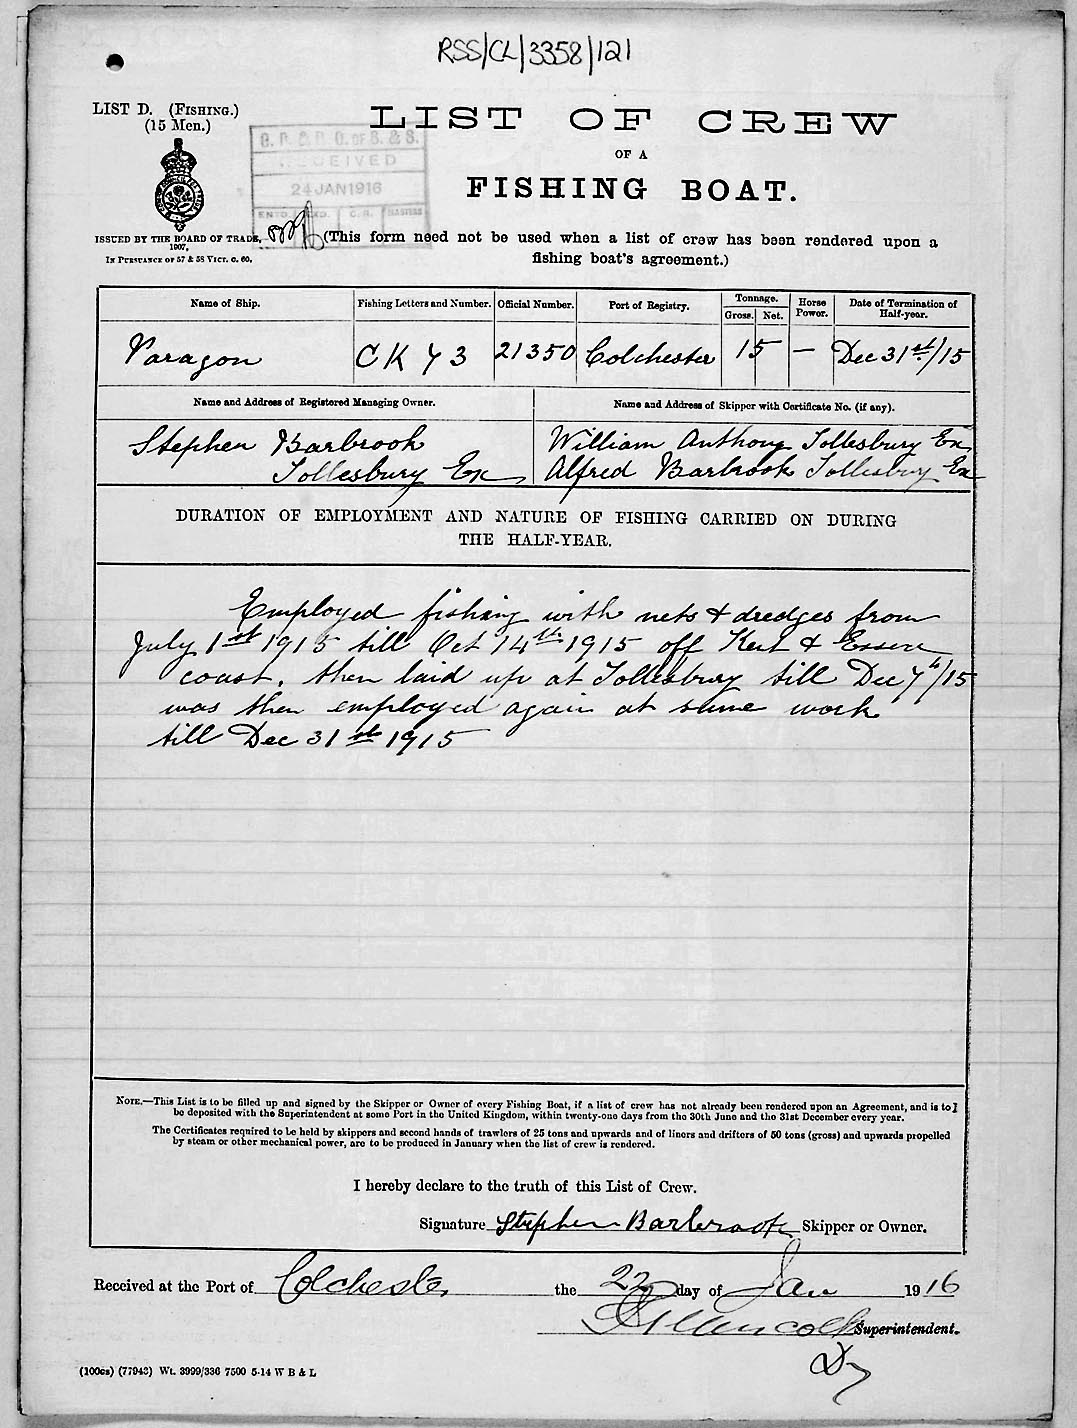 RSS/CL/3358/121
LIST D. (FISHING.)
(15 Men.)
LIST OF CREW
OF A
FISHING BOAT.
RECEIVED
24 JAN 1916
ISSUED BY THE BOARD OF TRADE,
1907,
IN PURSUANCE OF 57 & 58 VICT. C. 60.
(This form need not be used when a list of crew has been rendered upon a
fishing boat's agreement.)
Name of Ship. Fishing Letters and Number. Official Number. Port of Registry. Tonnage. Gross. Net. Horse Power. Date of Termination of Half-year.
Paragon CK 73 21350 Colchester 15 — Dec 31st/15
Name and Address of Registered Managing Owner. Name and Address of Skipper with Certificate No. (if any).
Stephen Barbrook William Anthony Tollesbury Ex
Tollesbury Ex Alfred Barbrook Tollesbury Ex
DURATION OF EMPLOYMENT AND NATURE OF FISHING CARRIED ON DURING
THE HALF-YEAR.
Employed fishing with nets & dredges from
July 1st 1915 till Oct 14th 1915 off Kent & Essex
coast. then laid up at Tollesbury till Dec 7th/15
was then employed again at same work
till Dec 31st 1915
NOTE.—This List is to be filled up and signed by the Skipper or Owner of every Fishing Boat, if a list of crew has not already been rendered upon an Agreement, and is to
be deposited with the Superintendent at some Port in the United Kingdom, within twenty-one days from the 30th June and the 31st December every year.
The Certificates required to be held by skippers and second hands of trawlers of 25 tons and upwards and of liners and drifters of 50 tons (gross) and upwards propelled
by steam or other mechanical power, are to be produced in January when the list of crew is rendered.
I hereby declare to the truth of this List of Crew.
Signature Stephen Barbrook Skipper or Owner.
Received at the Port of Colchester the 22 day of Jan 1916
Superintendent.
(100cs) (77943) Wt. 3999/336 7500 5-14 W B & L